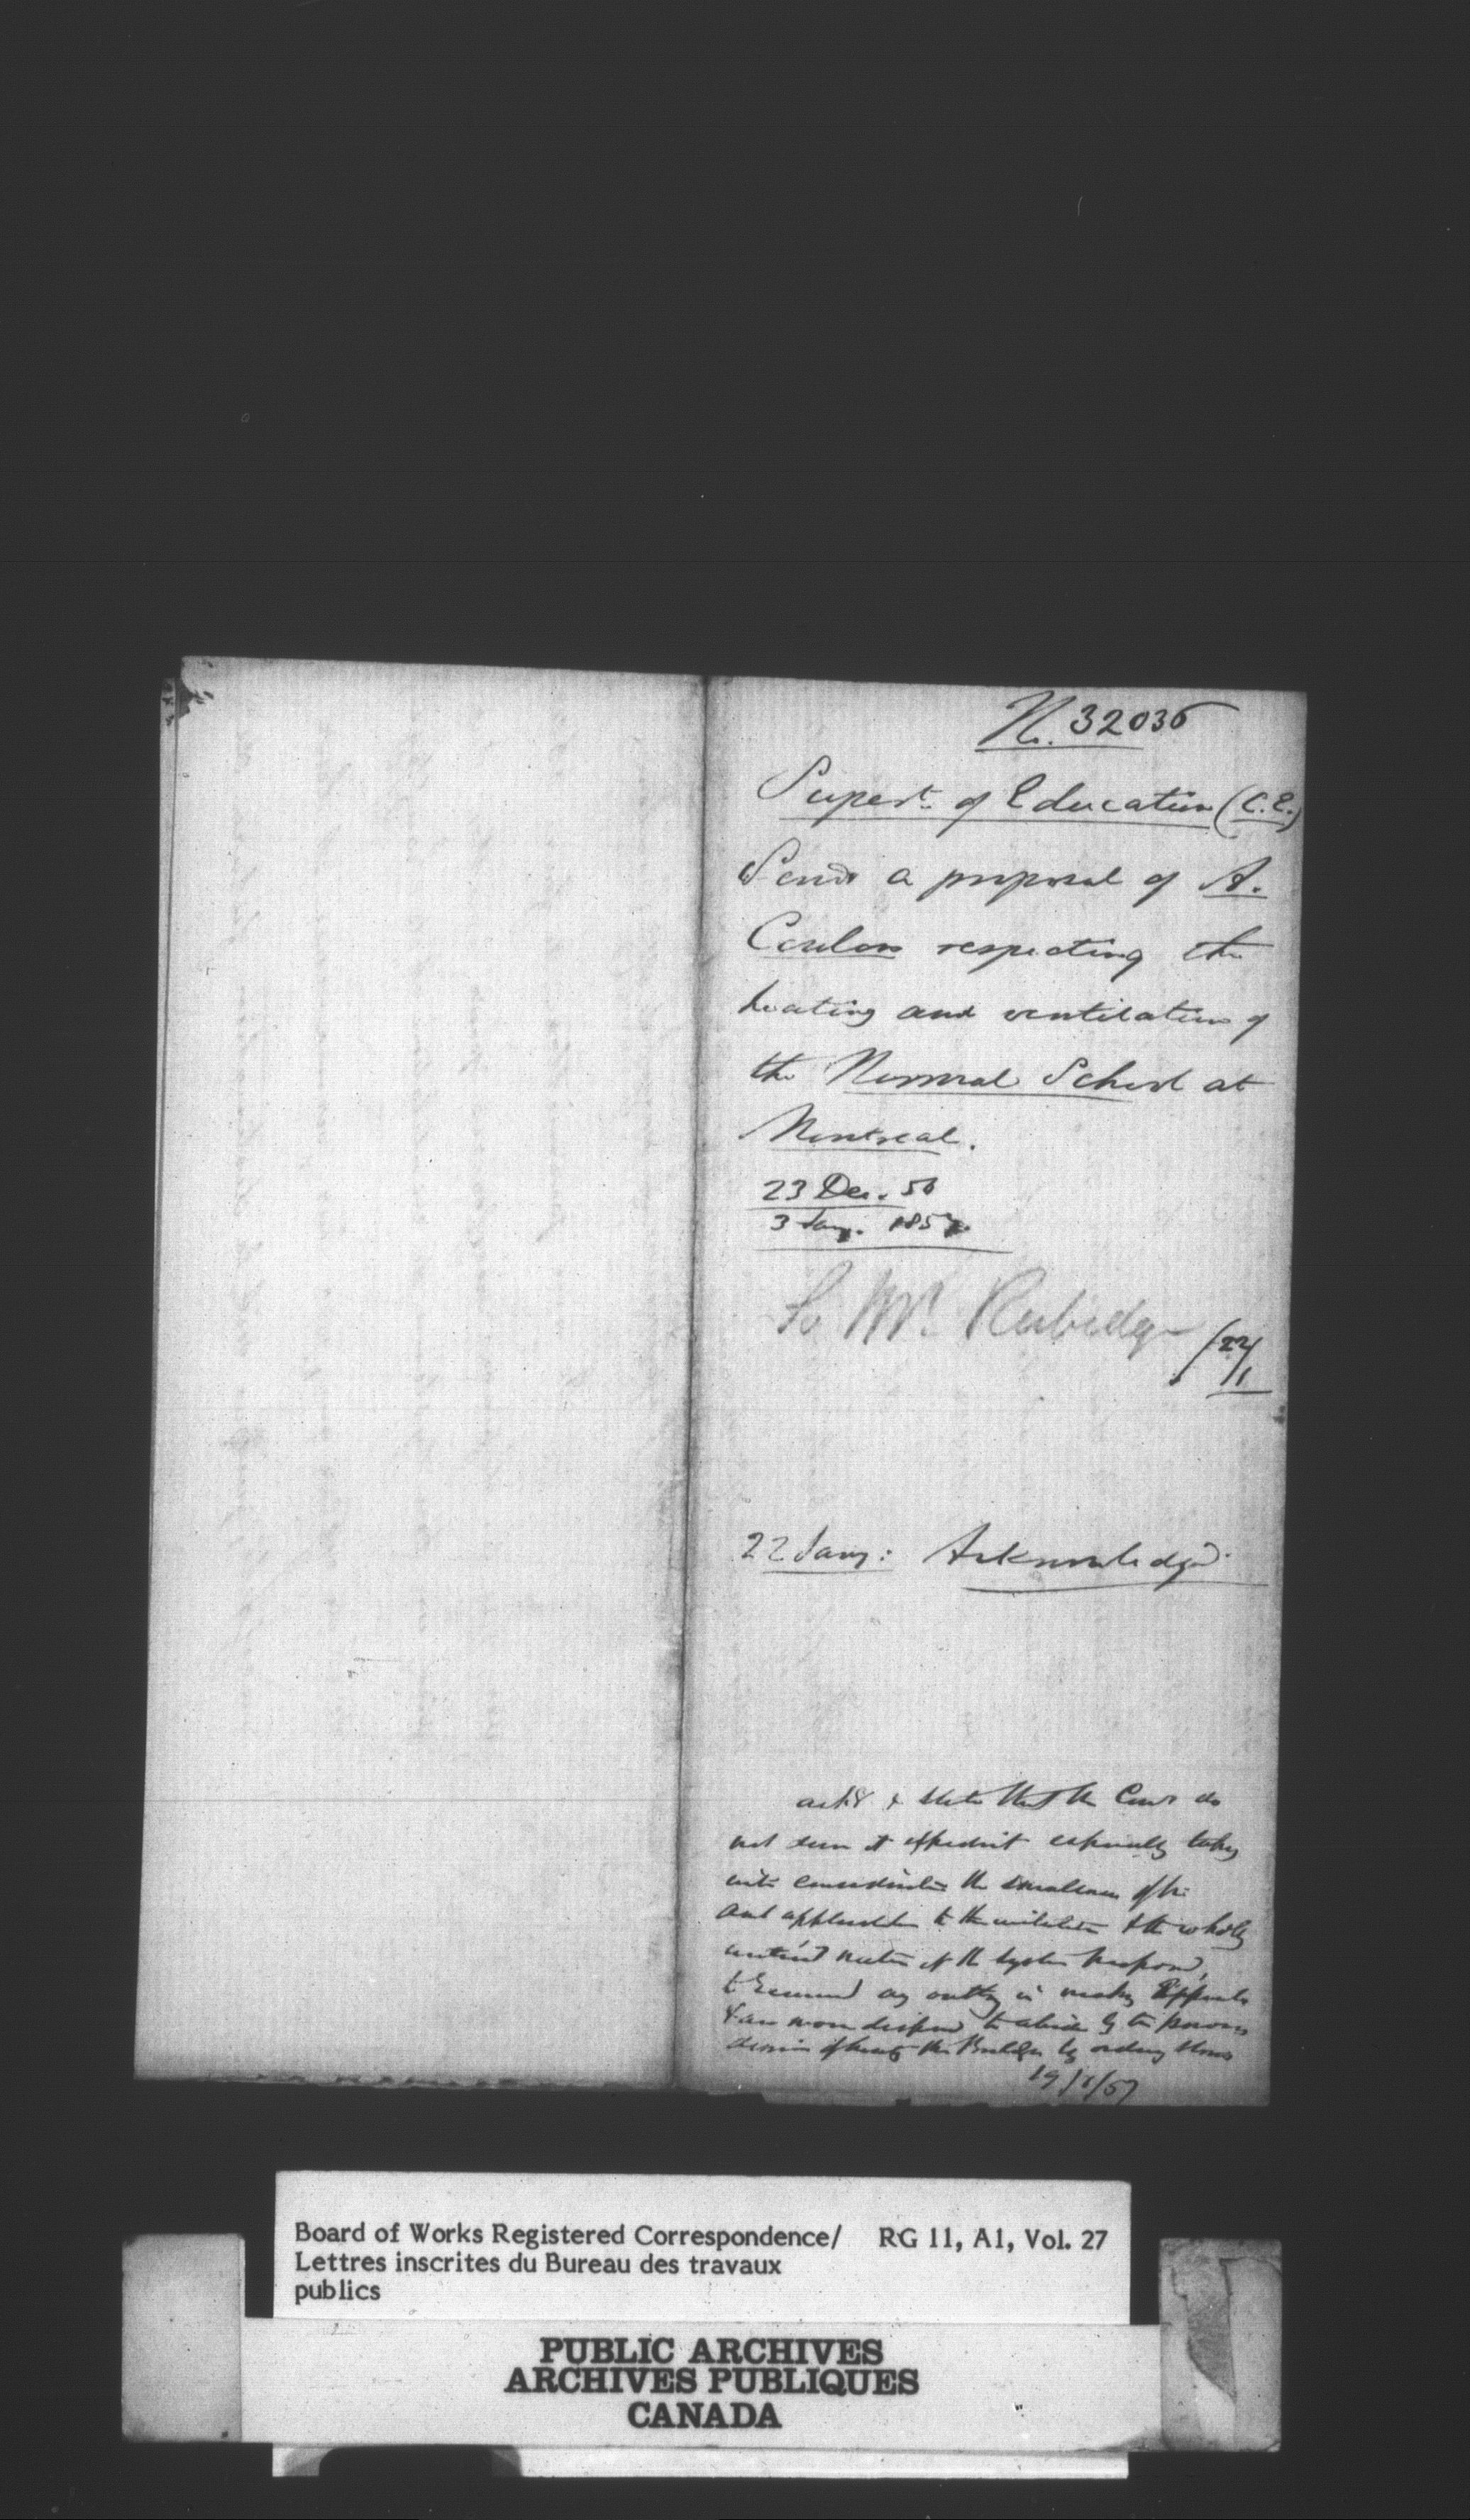 No. 32036
Supert. of Education (C.E.)
Sends a proposal of A.
Coulon respecting the
heating and ventilation of
the Normal School at
Montreal.
23 Dec. 56
3 Jany. 1857.
To Mr. Rubidge
22/1
22 Jany: Acknowledged.
ackd & state that the Comrs do
not deem it expedient especially taking
into consideration the smallness of the
amt applicable to the & the wholly
untried nature of the system proposed,
to recommend any outlay in making
& are more disposed to abide by the previous
decision of heating the Building by ordinary stoves
19/1/57
Board of Works Registered Correspondence/ RG 11, A1, Vol. 27
Lettres inscrites du Bureau des travaux
publics
PUBLIC ARCHIVES
ARCHIVES PUBLIQUES
CANADA